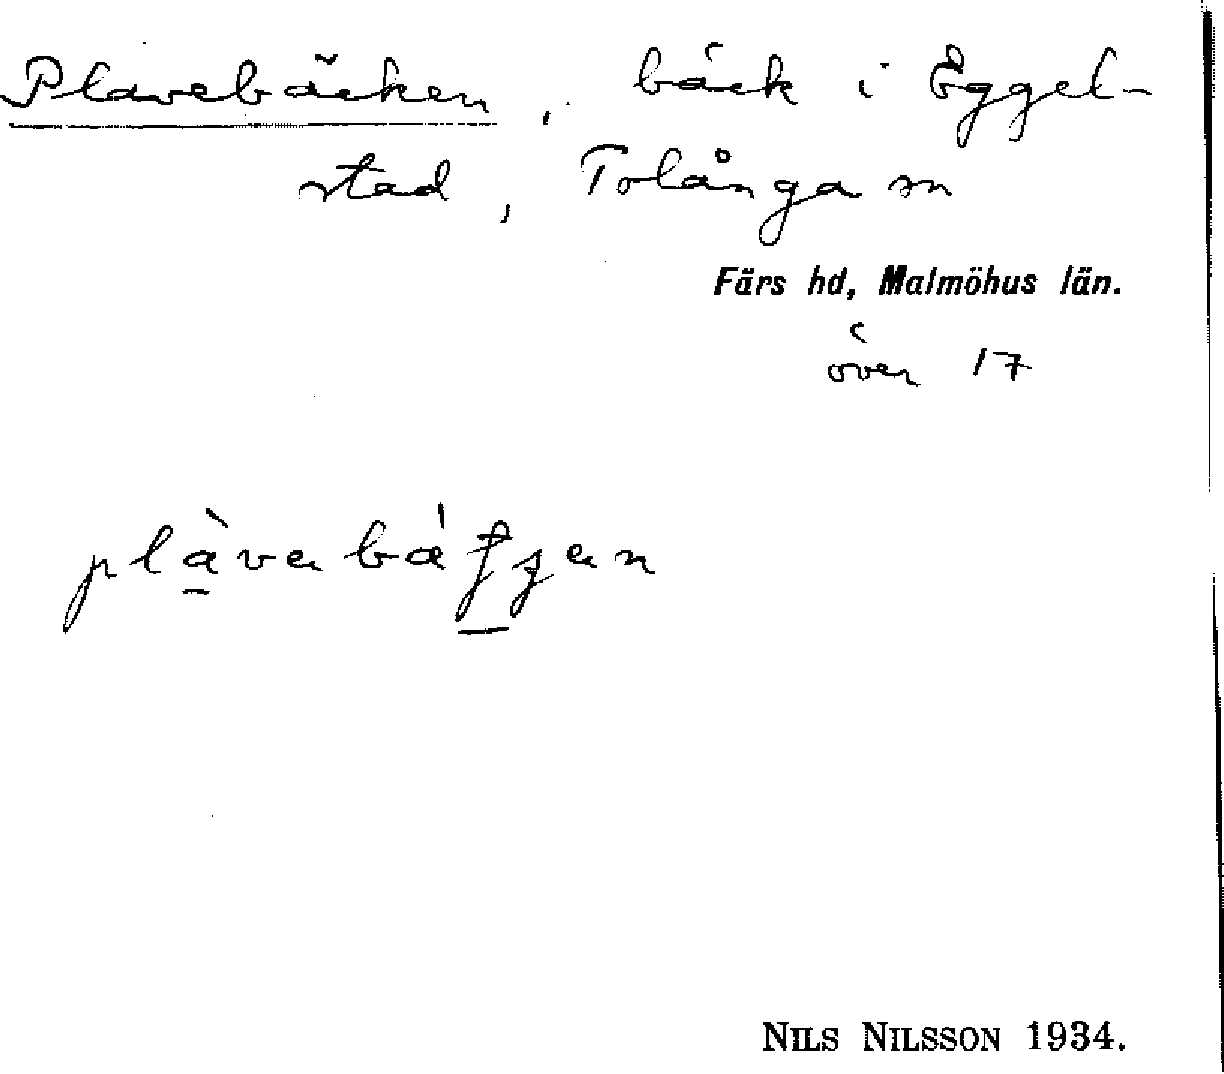 Plavebäcken, bäck i Eggel-
stad, Tolånga sn
Färs hd, Malmöhus län.
över 17
NILS NILSSON 1934.